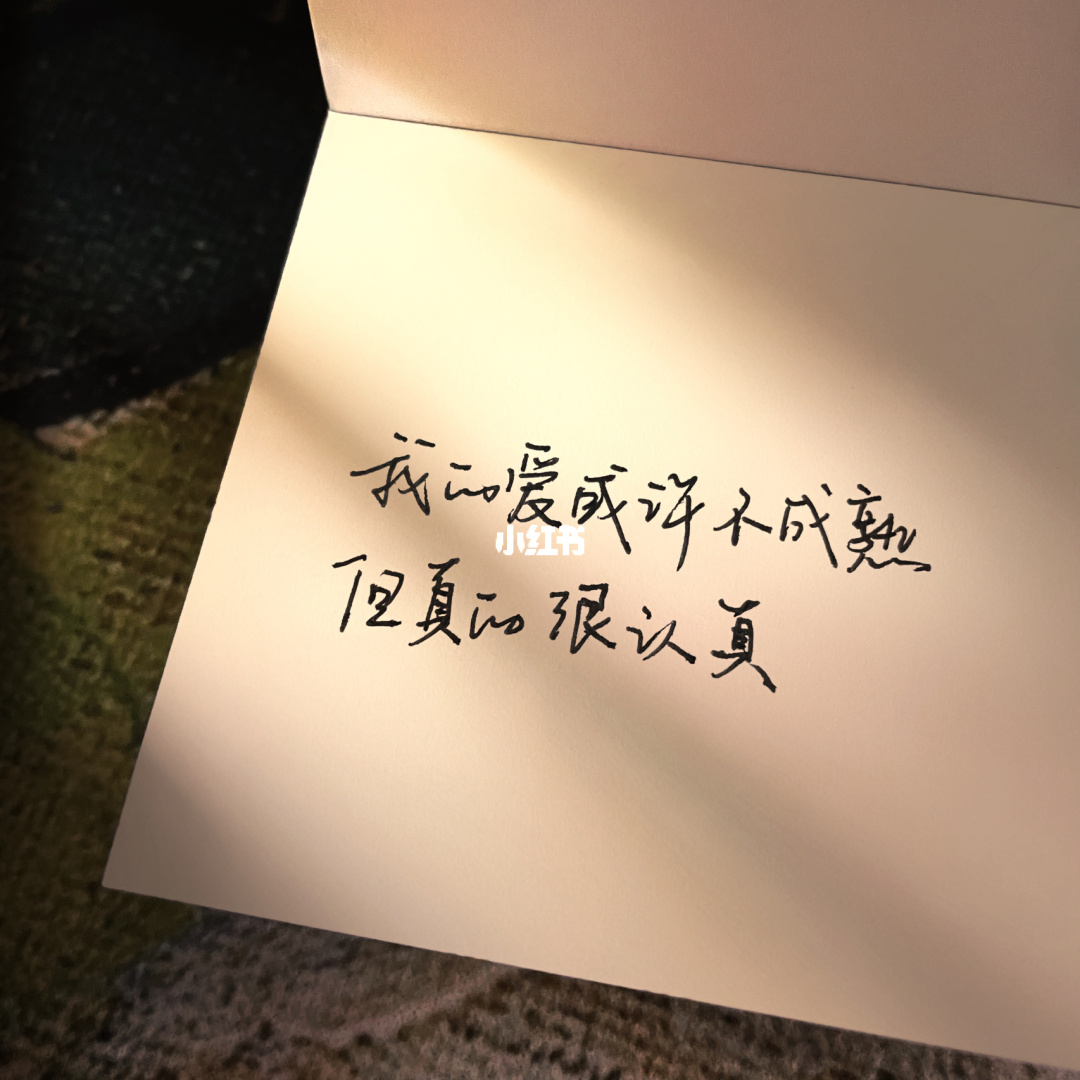 我的爱或许不成熟
小红书
但真的很认真